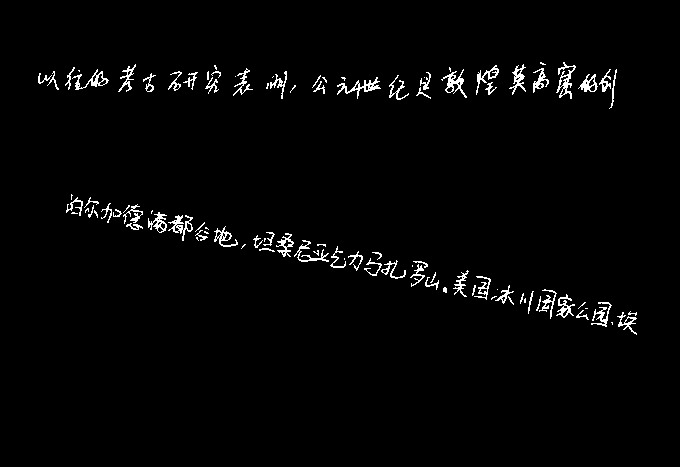 以往的考古研究表明，公元4世纪是敦煌莫高窟的创
的尔加德满都谷地，坦桑尼亚乞力马扎罗山。美国冰川国家公园、埃